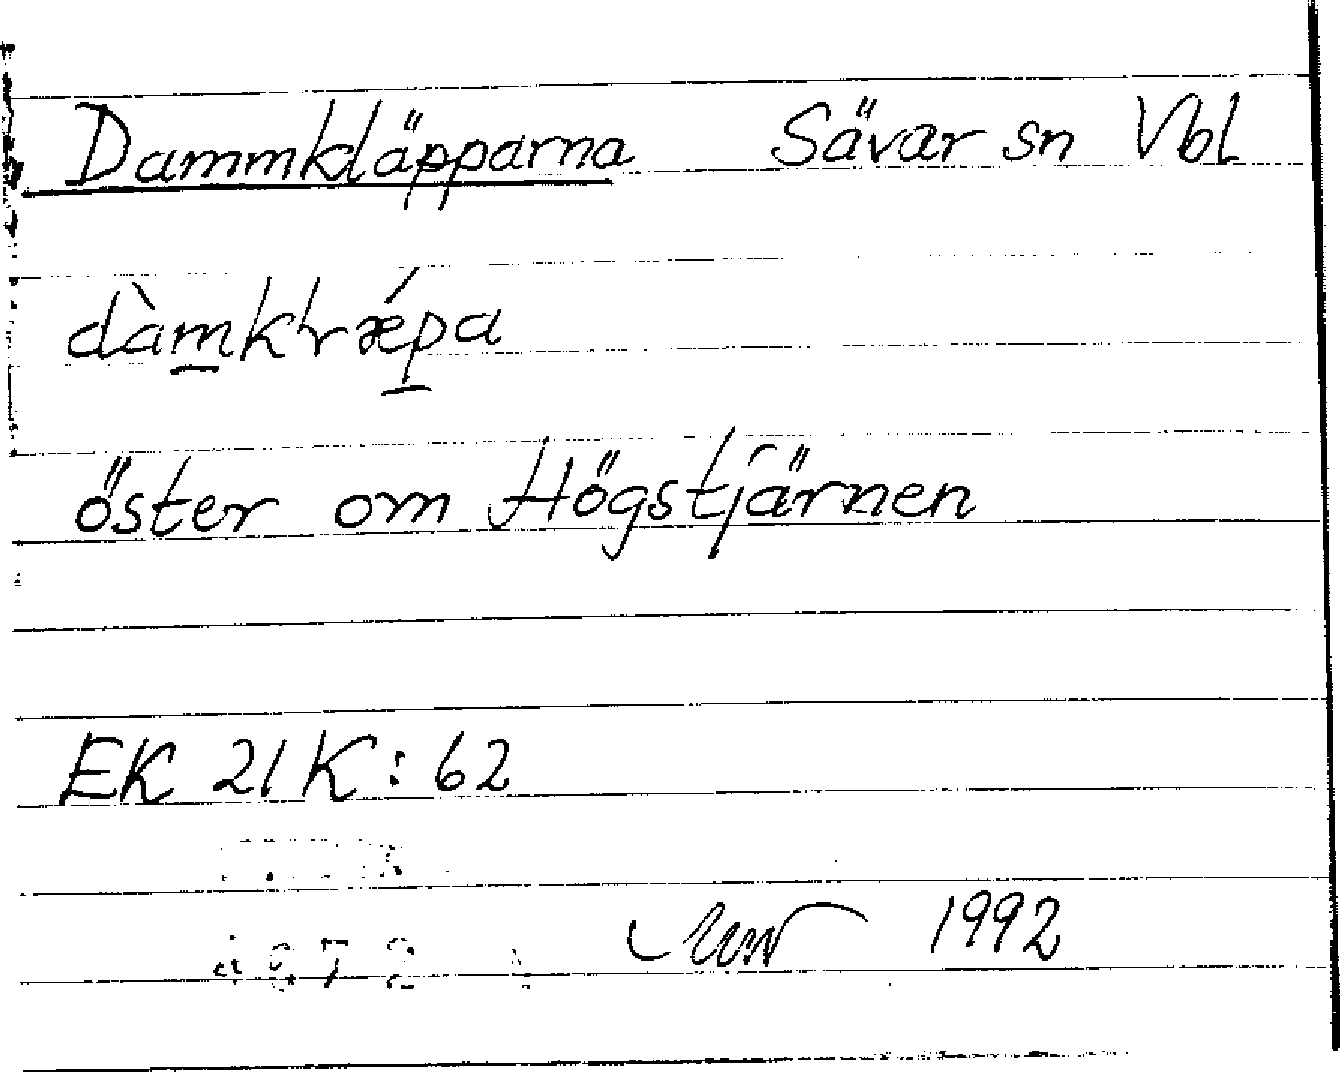 Dammkläpparna Sävar sn Vbl
dàm̲kɬrǽp̲a
öster om Högstjärnen
EK 21 K : 62
1992